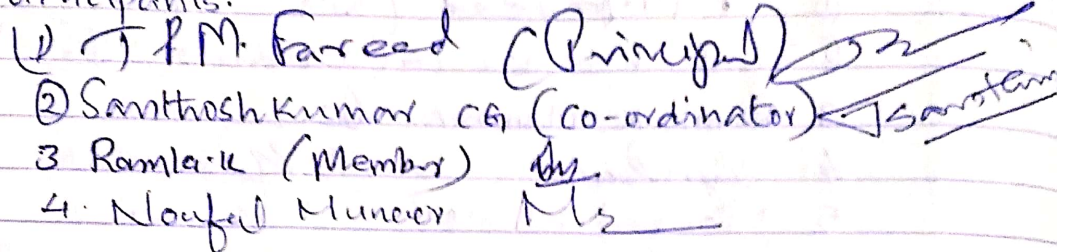 (1) T P M. Fareed (Principal)
② Santhosh Kumar CG (Co-ordinator)
3 Ramla.K (Member)
4. Noufal Muneer